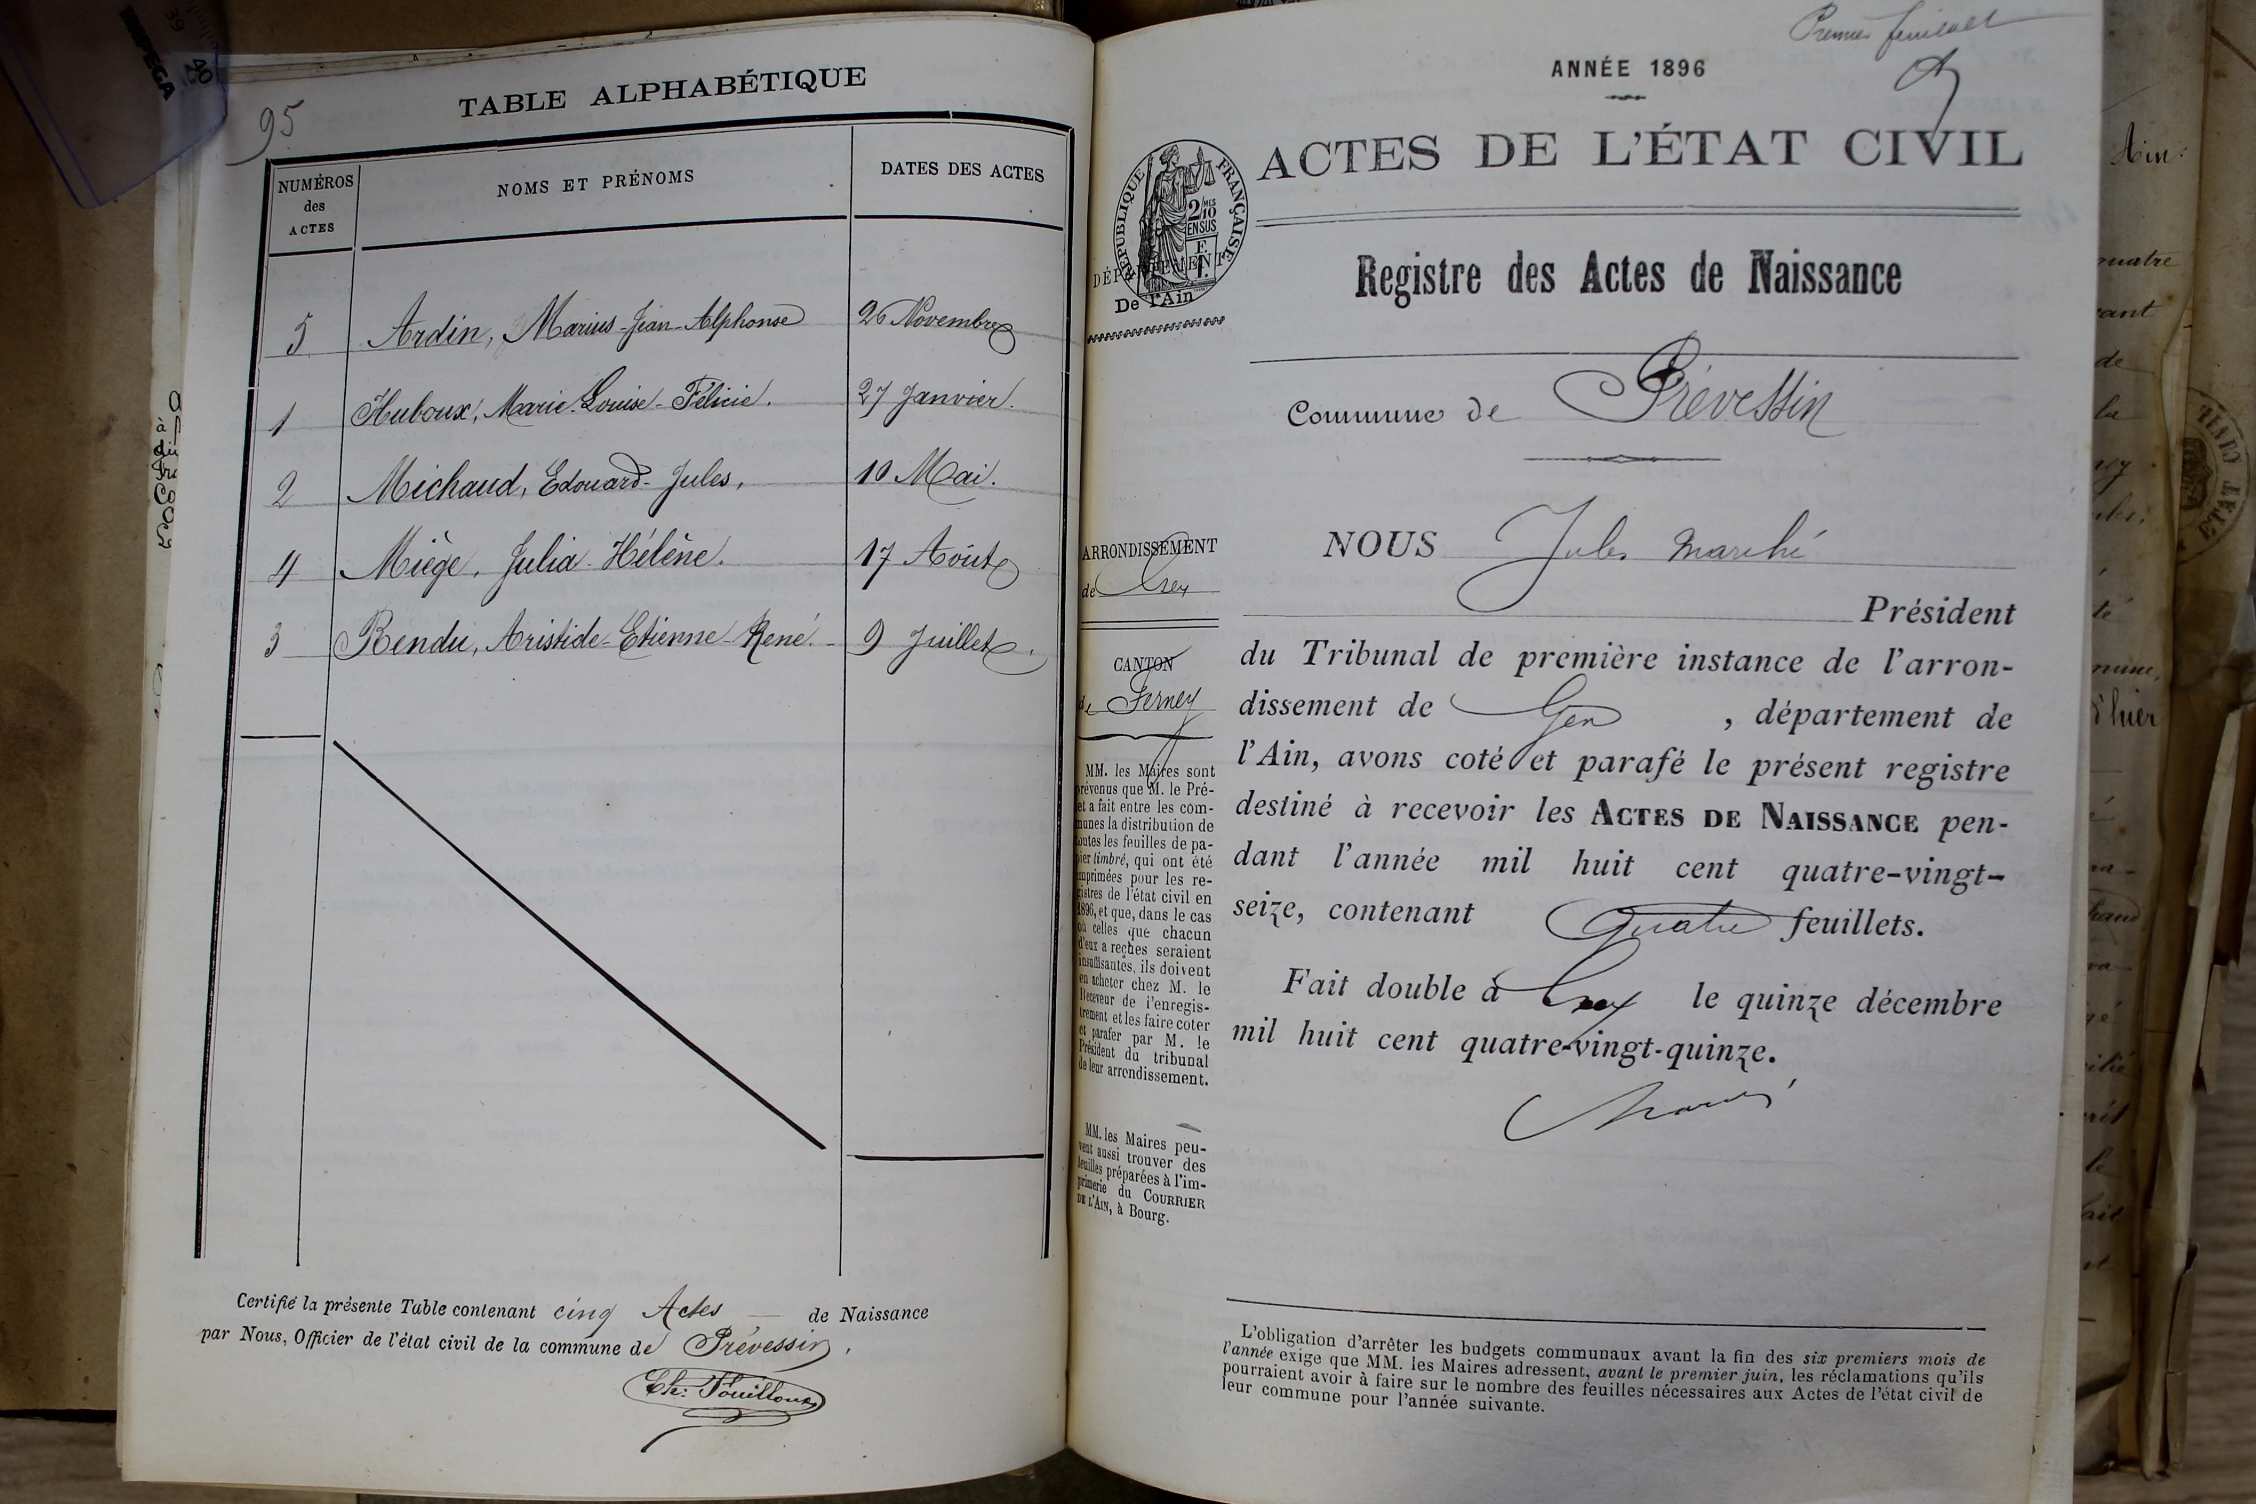 95
TABLE ALPHABÉTIQUE
NUMÉROS
des
ACTES
NOMS ET PRÉNOMS
DATES DES ACTES
5 Ardin, Marius-Jean-Alphonse 26 Novembre
1 Huboux, Marie-Louise-Félicie. 27 Janvier.
2 Michaud, Edouard-Jules, 10 Mai.
4 Miège, Julia-Hélène. 17 Août
3 Rendu, Aristide-Etienne-René. 9 Juillet.
Certifié la présente Table contenant cinq Actes de Naissance
par Nous, Officier de l'état civil de la commune de Prévessin,
Ch: Fouilloux
Premier feuillet
ANNÉE 1896
ACTES DE L'ÉTAT CIVIL
RÉPUBLIQUE FRANÇAISE
2/10
EN SUS
DÉPARTEMENT
De l'Ain
Registre des Actes de Naissance
Commune de Prévessin
ARRONDISSEMENT
de Gex
CANTON
de Ferney
MM. les Maires sont
prévenus que M. le Pré-
et a fait entre les com-
munes la distribution de
toutes les feuilles de pa-
pier timbré, qui ont été
imprimées pour les re-
gistres de l'état civil en
1896, et que, dans le cas
où celles que chacun
d'eux a reçues seraient
insuffisantes, ils doivent
en acheter chez M. le
Receveur de l'enregis-
trement et les faire coter
et parafer par M. le
Président du tribunal
de leur arrondissement.
MM. les Maires peu-
vent aussi trouver des
feuilles préparées à l'im-
primerie du COURRIER
DE L'AIN, à Bourg.
NOUS Jules Marché
Président
du Tribunal de première instance de l'arron-
dissement de Gex, département de
l'Ain, avons coté et parafé le présent registre
destiné à recevoir les ACTES DE NAISSANCE pen-
dant l'année mil huit cent quatre-vingt-
seize, contenant quatre feuillets.
Fait double à Gex le quinze décembre
mil huit cent quatre-vingt-quinze.
Marché
L'obligation d'arrêter les budgets communaux avant la fin des six premiers mois de
l'année exige que MM. les Maires adressent, avant le premier juin, les réclamations qu'ils
pourraient avoir à faire sur le nombre des feuilles nécessaires aux Actes de l'état civil de
leur commune pour l'année suivante.